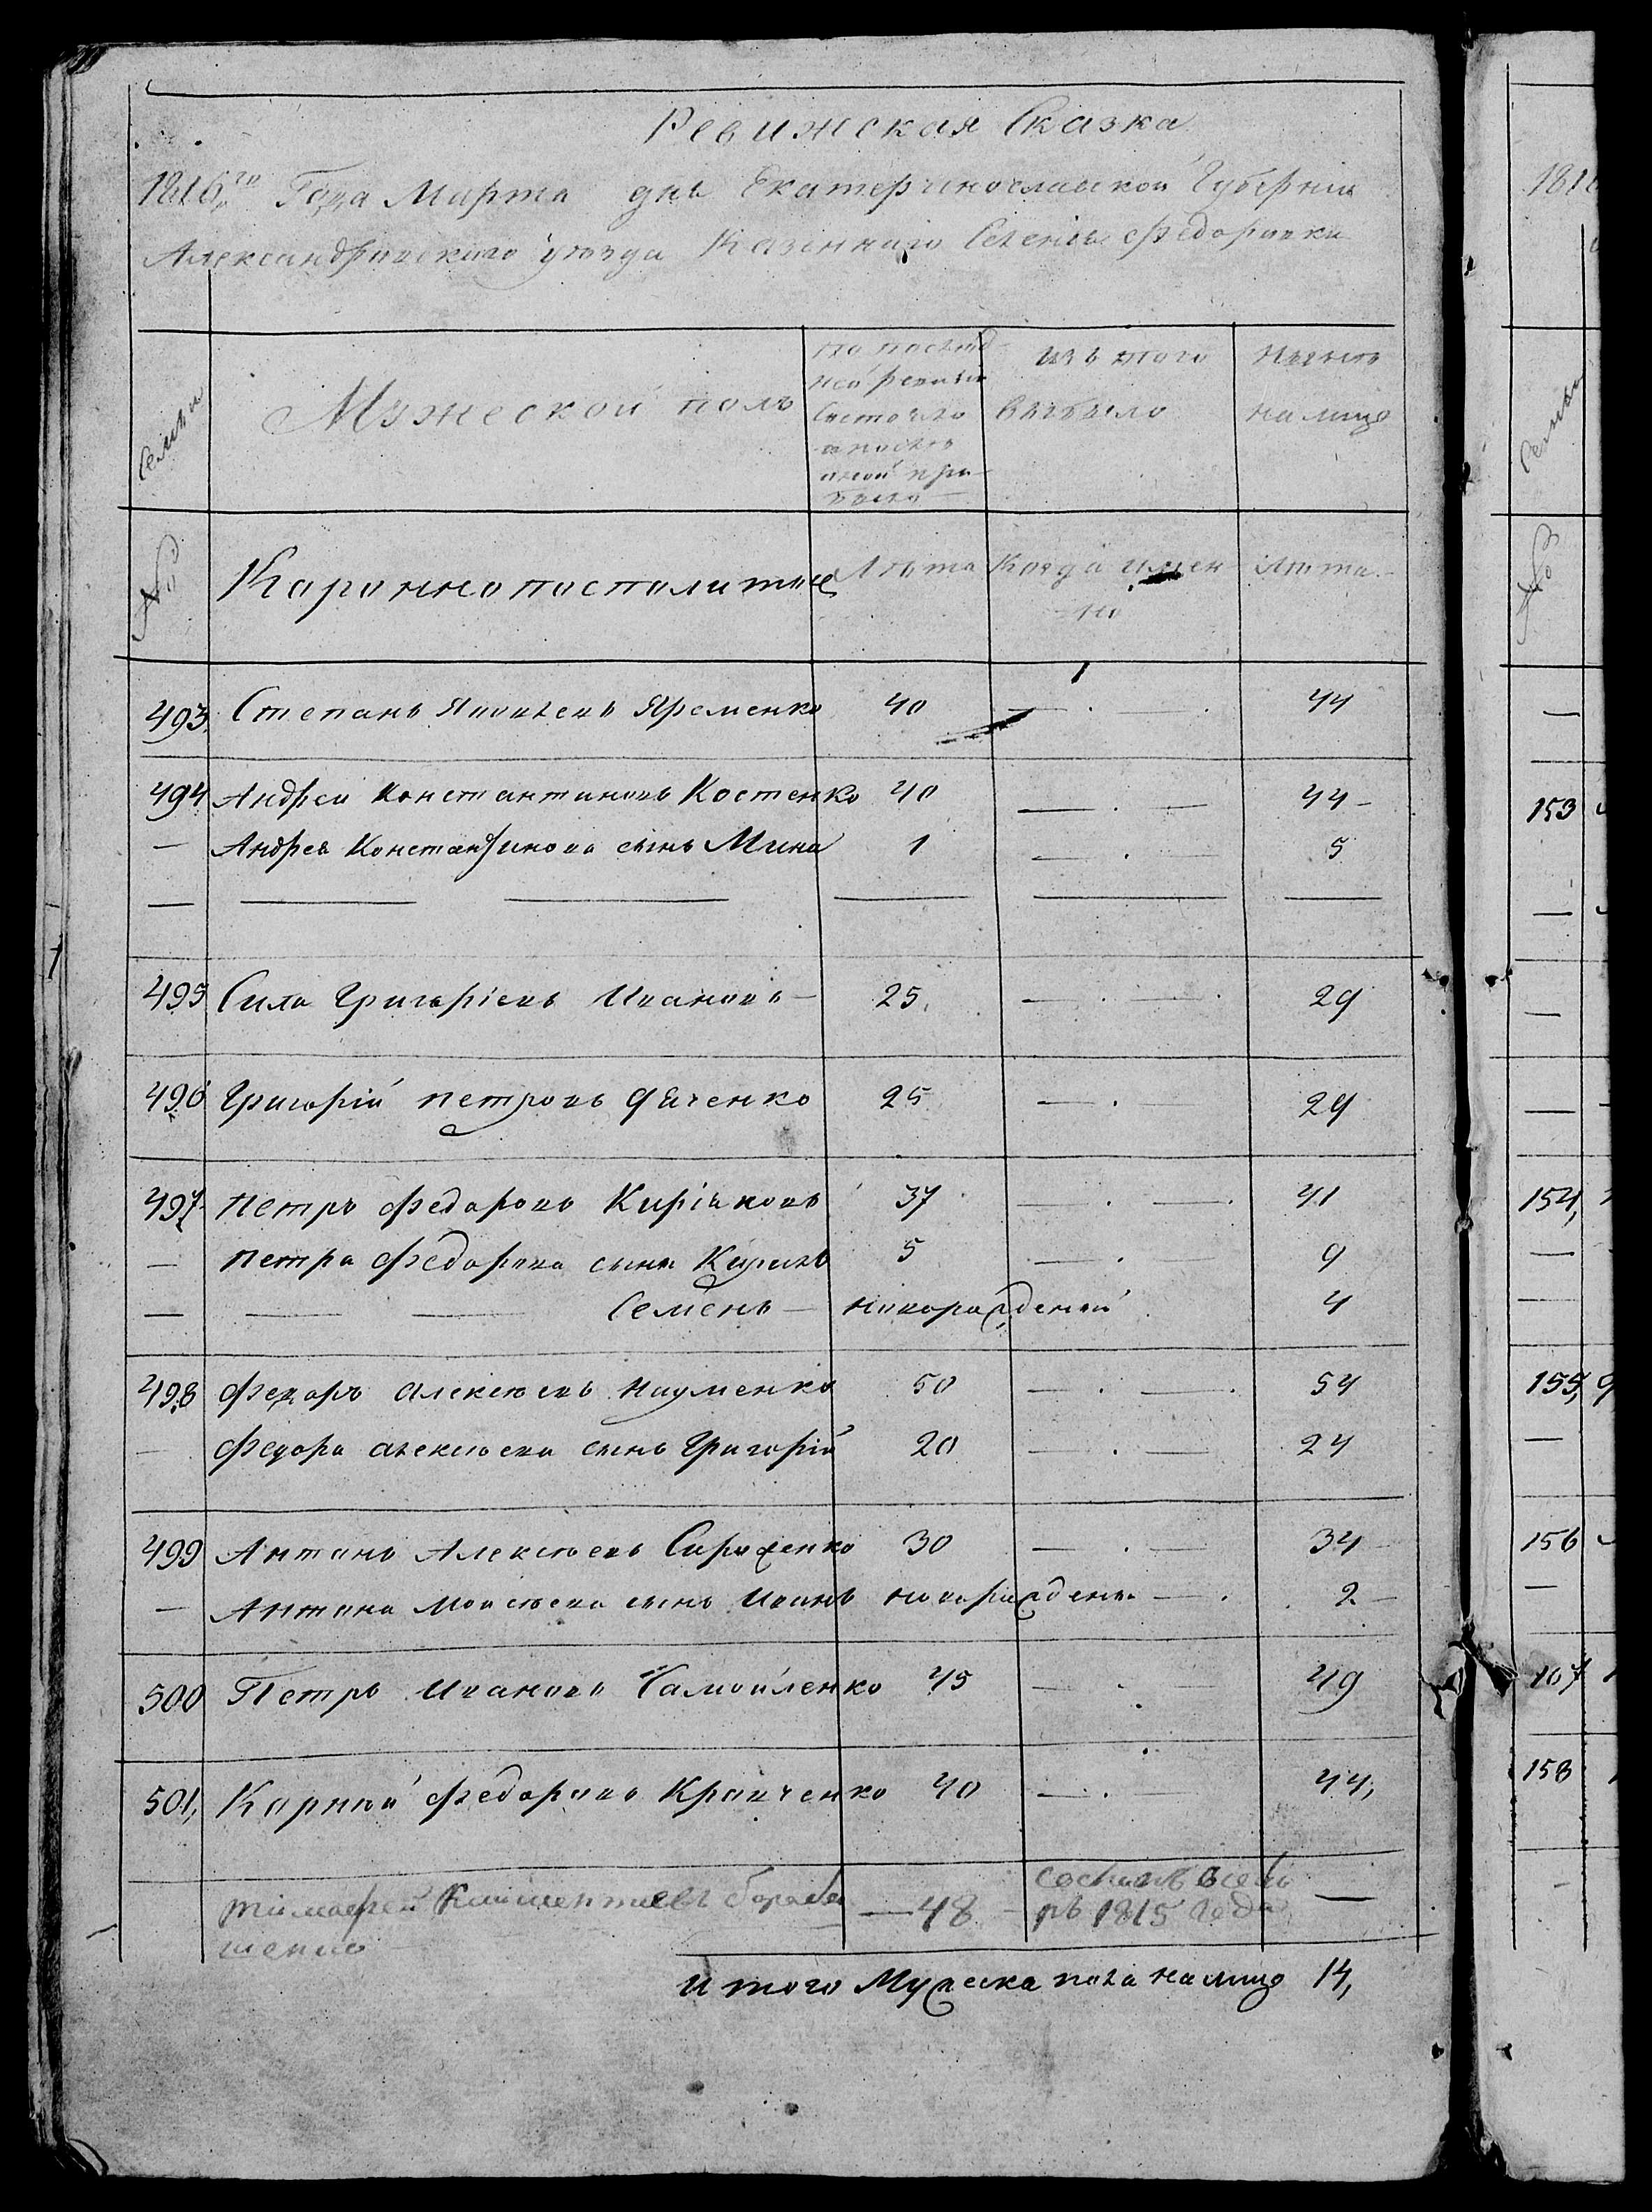 Ревижская Сказка
1816го Года Марта дня Екатеринославской Губернии
Александровского уѣзда Казенного Селенія Федоровки
Семьи
Мужеской полъ
по послед
ней ревизіи
Состояло
и послѣ
оной при
было
изъ того
выбыло
Нынѣ
на лицо
№
Коронно посполитые
Лѣта
Когда имен
но
Лѣта
493 Степанъ Яковлевъ Яременко 40 44
494 Андрей Константиновъ Костенко 40 44
Андрея Константинова сынъ Мина 1 5
495 Сила Григорьевъ Ивановъ 25 29
496 Григорій Петровъ Дяченко 25 29
497 Петръ Федоровъ Кирьяковъ 37 41
Петра Федорова сынъ Кирилъ 5 9
Семенъ новорожденой 4
498 Федоръ Алексѣевъ Науменко 50 54
Федора Алексѣева сынъ Григорій 20 24
499 Антонъ Алексѣевъ 30 34
Антона Моисѣева сынъ Иванъ новорожденъ 2
500 Петръ Ивановъ Самойленко 45 49
501, Карпъй Федоровъ Кравченко 40 44,
Тимофей 48
1815 Года
итого Мужеска пола на лицо 14,
181
Семьи
№
153
154,
155,
156
157
158